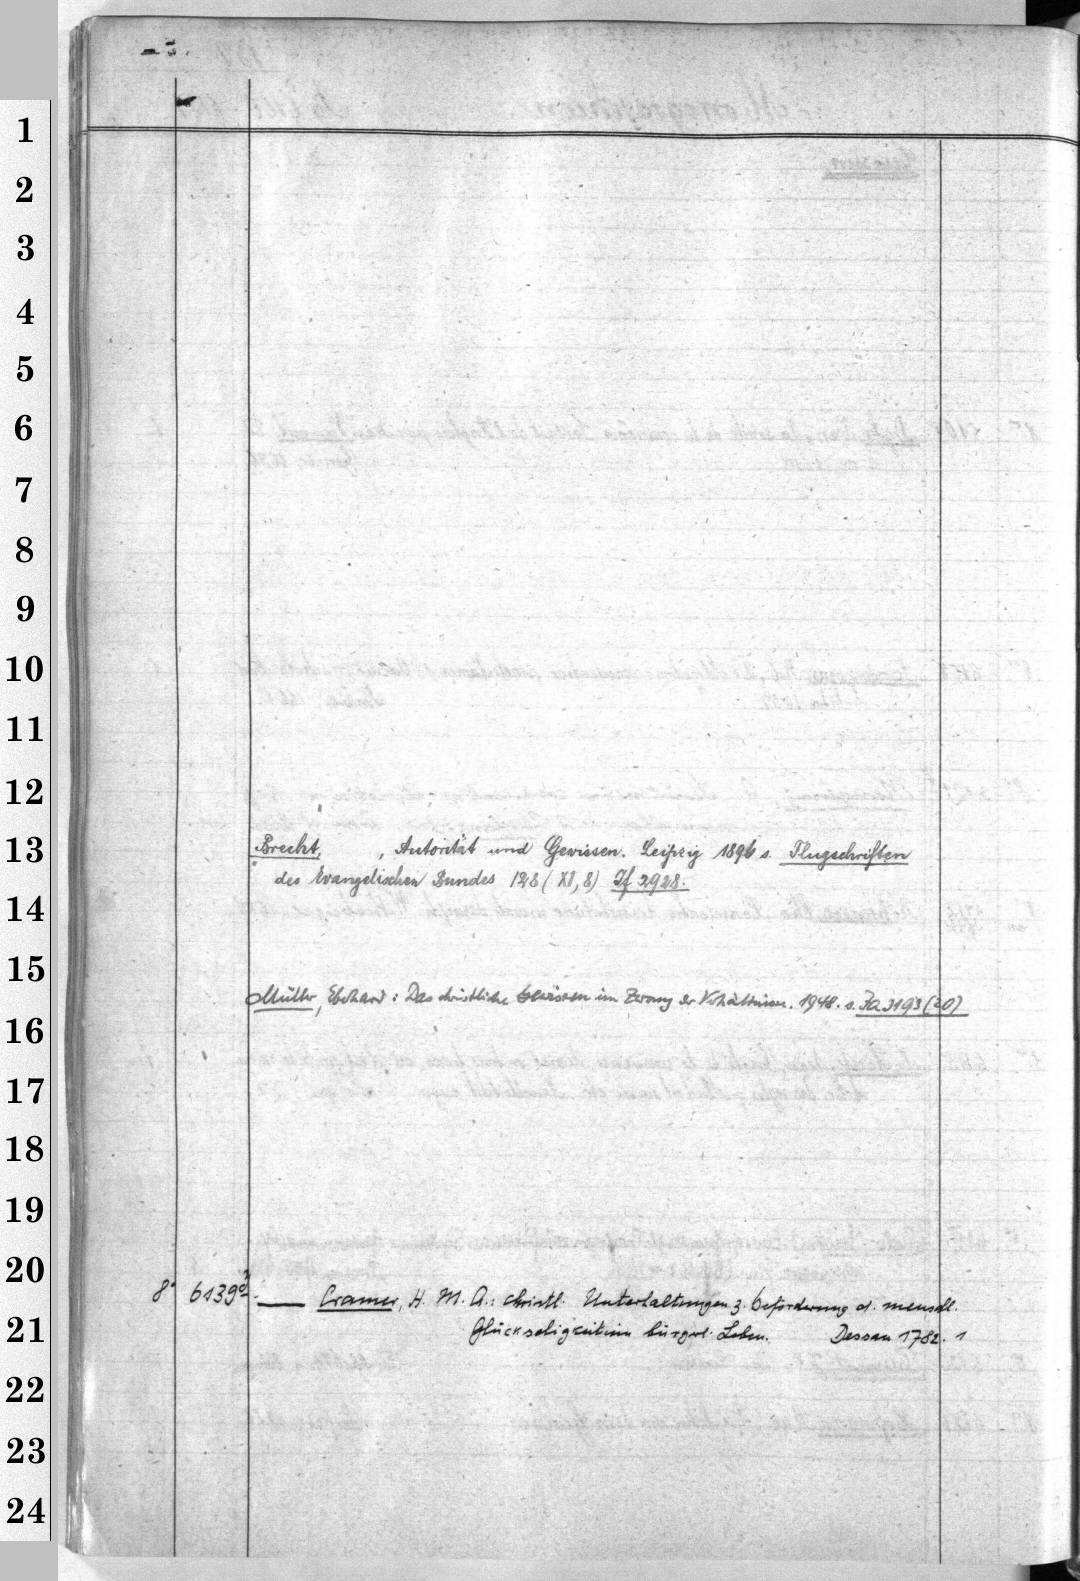 1
2
3
4
5
6
7
8
9
10
11
12
13
14
15
16
17
18
19
20
21
22
23
24
Brecht, , Autorität und Gewissen. Leipzig 1896 s. Flugschriften
des Evangelischen Bundes 128 (XI,8) If 2928.
Müller, Eberhard: Das christliche Gewissen im Zwang der Verhältnisse. 1948. s. Ja 3193 (20)
8° 6139 — Cramer, H. M. A.: christl. Unterhaltungen z. Beförderung d. menschl.
Glückseligkeit im bürgerl. Leben. Dessau 1782. 1